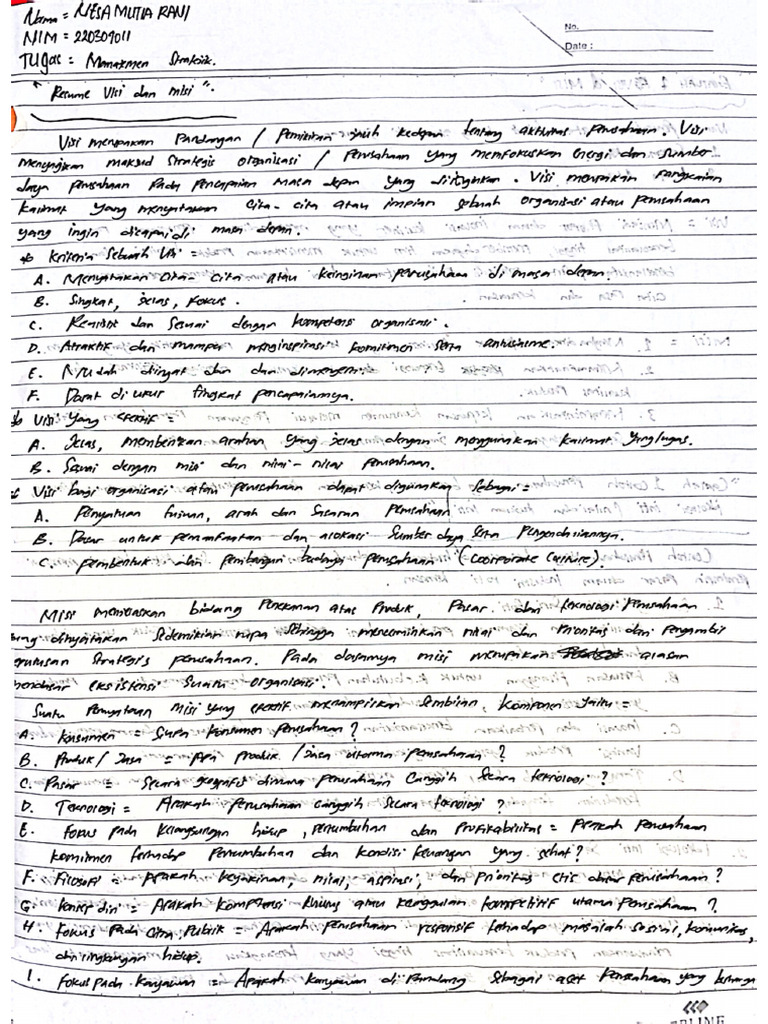 Nama = NESA MUTIA RANI
NIM = 220304011
TUgas = Manajemen Strategik.
No.
Date :
" Resume Visi dan misi ".
Visi merupakan Pandangan / Pemikiran jauh kedepan tentang aktivitas Perusahaan. Visi
menunjukan maksud strategis organisasi / Perusahaan yang memfokuskan energi dan sumber
daya perusahaan Pada Pencapaian masa depan yang diinginkan. Visi merupakan rangkaian
kalimat yang menyatakan cita-cita atau impian sebuah organisasi atau perusahaan
yang ingin dicapai di masa depan.
* kriteria sebuah Visi =
A. Menyatakan cita-cita atau keinginan perusahaan di masa depan.
B. Singkat, jelas, Fokus.
C. Realistik dan Sesuai dengan kompetensi organisasi.
D. Atraktif dan mampu menginspirasi komitmen serta antusiasme.
E. Mudah diingat dan dan dimengerti
F. Dapat di ukur tingkat pencapaiannya.
* Visi yang efektif =
A. Jelas, memberikan arahan yang jelas dengan menggunakan kalimat yang lugas.
B. Sesuai dengan misi dan nilai-nilai perusahaan.
* Visi bagi organisasi atau perusahaan dapat digunakan sebagai =
A. Penyatuan tujuan, arah dan Sasaran Perusahaan
B. Dasar untuk pemanfaatan dan alokasi Sumber daya serta Pengendaliannya.
C. pembentuk dan pembangun budaya perusahaan (coorporate culture).
Misi menjelaskan bidang Penekanan atas Produk, Pasar dan teknologi Perusahaan
yang dinyatakan sedemikian rupa sehingga mencerminkan nilai dan Prioritas dari pengambil
keputusan strategis perusahaan. Pada dasarnya misi merupakan alasan
mendasar eksistensi suatu organisasi.
Suatu Pernyataan Misi yang efektif menampilkan sembilan komponen yaitu =
A. konsumen = Siapa konsumen perusahaan ?
B. Produk / Jasa = Apa Produk / jasa utama perusahaan ?
C. Pasar = Secara geografis dimana perusahaan Canggih secara teknologi ?
D. Teknologi = Apakah perusahaan canggih secara teknologi ?
E. Fokus pada kelangsungan hidup, pertumbuhan dan Profitabilitas = Apakah Perusahaan
komitmen terhadap Pertumbuhan dan kondisi keuangan yang sehat ?
F. Filosofi = Apakah keyakinan, nilai, aspirasi, dan prioritas etis dasar perusahaan ?
G. konsep diri = Apakah kompetensi khusus atau keunggulan kompetitif utama Perusahaan ?
H. Fokus Pada Citra Publik = Apakah perusahaan responsif terhadap masalah sosial, komunitas,
dan lingkungan hidup.
I. Fokus pada karyawan = Apakah karyawan di Pandang sebagai aset Perusahaan yang berharga